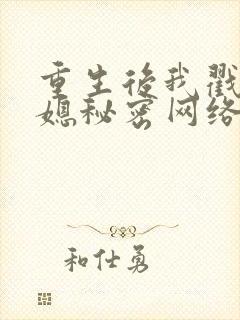 重生后我戳
媳秘密网络
和仕勇